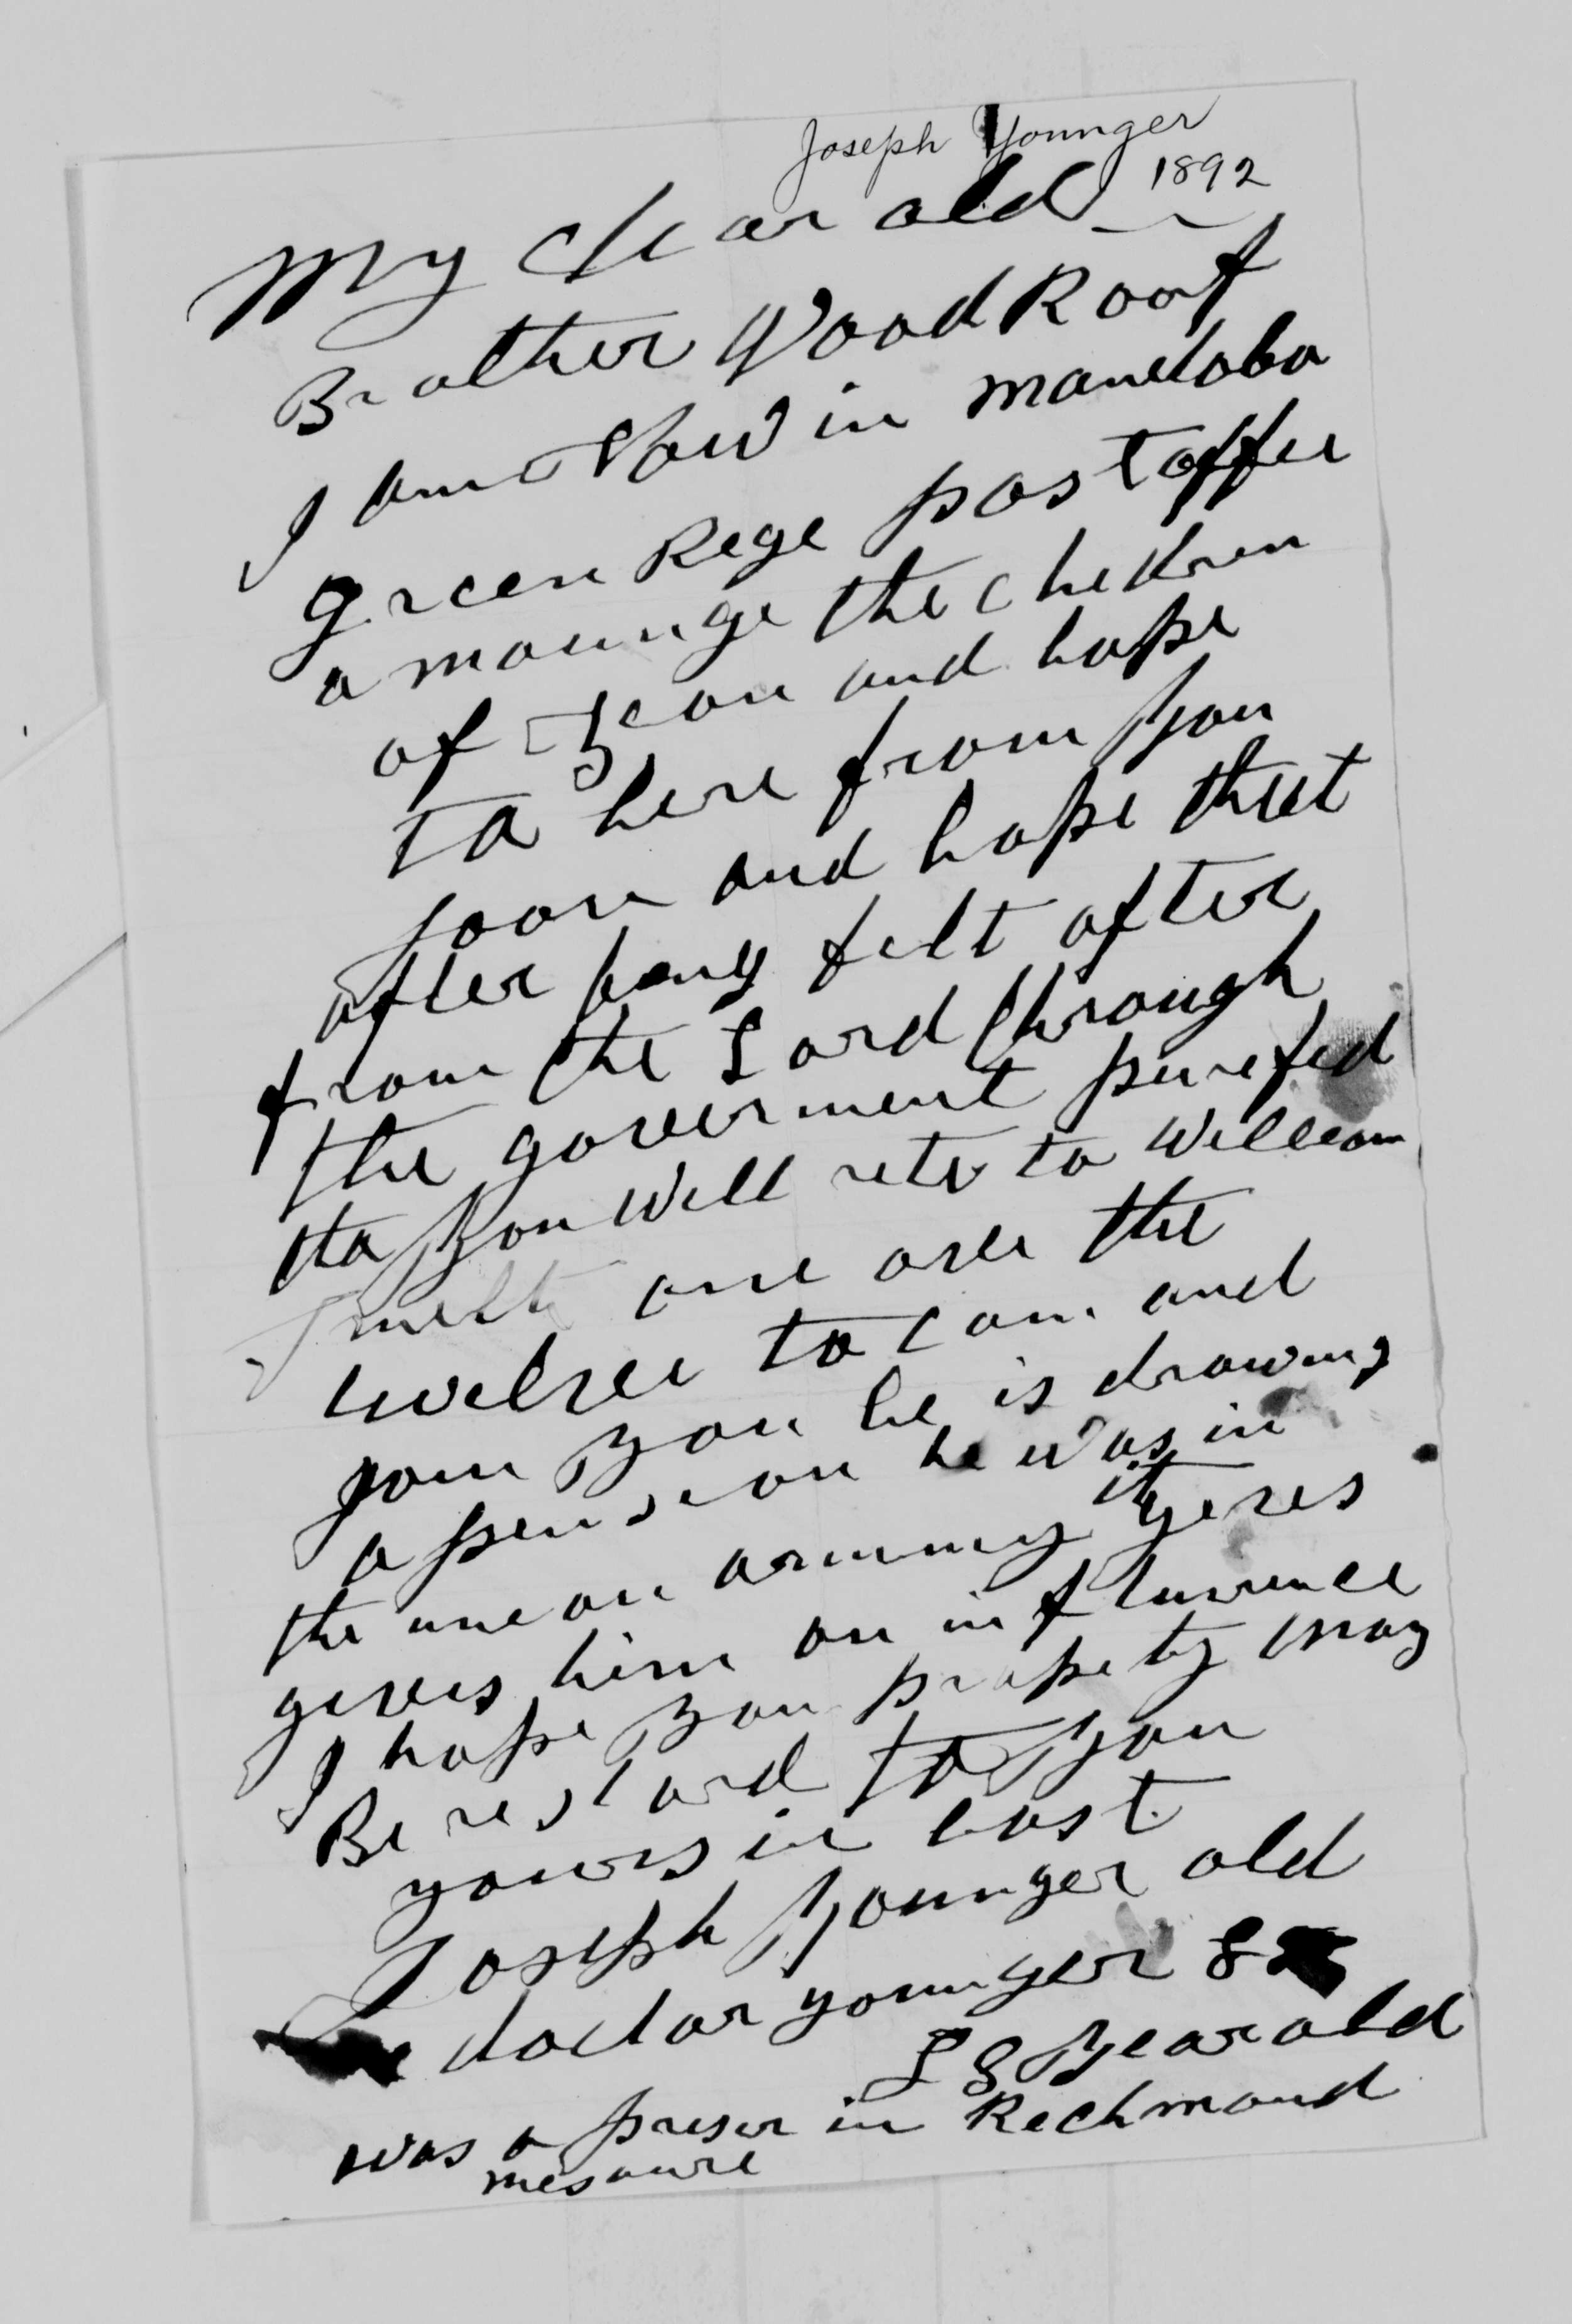 Joseph Younger
1892
My dear old
Brother WoodRoof
I am Now in manetoba
green Rege post offec
a mounge the chedren
of Zeon and hope
to here from you
soon and hope thet
after beng felt after
from the Lord through
the goverment purefed
tha you will rete to Willeam
Smeth one ove the
twelvee to com and
join you he is drawing
a penseon he was in
the uneon arummy it
geves him on inf luwence yeres
I hope you propety may
Be restord to you
yours in hast
Joseph Younger old
doctor younger
88 year old
was a preser in Rechmond
mesoure